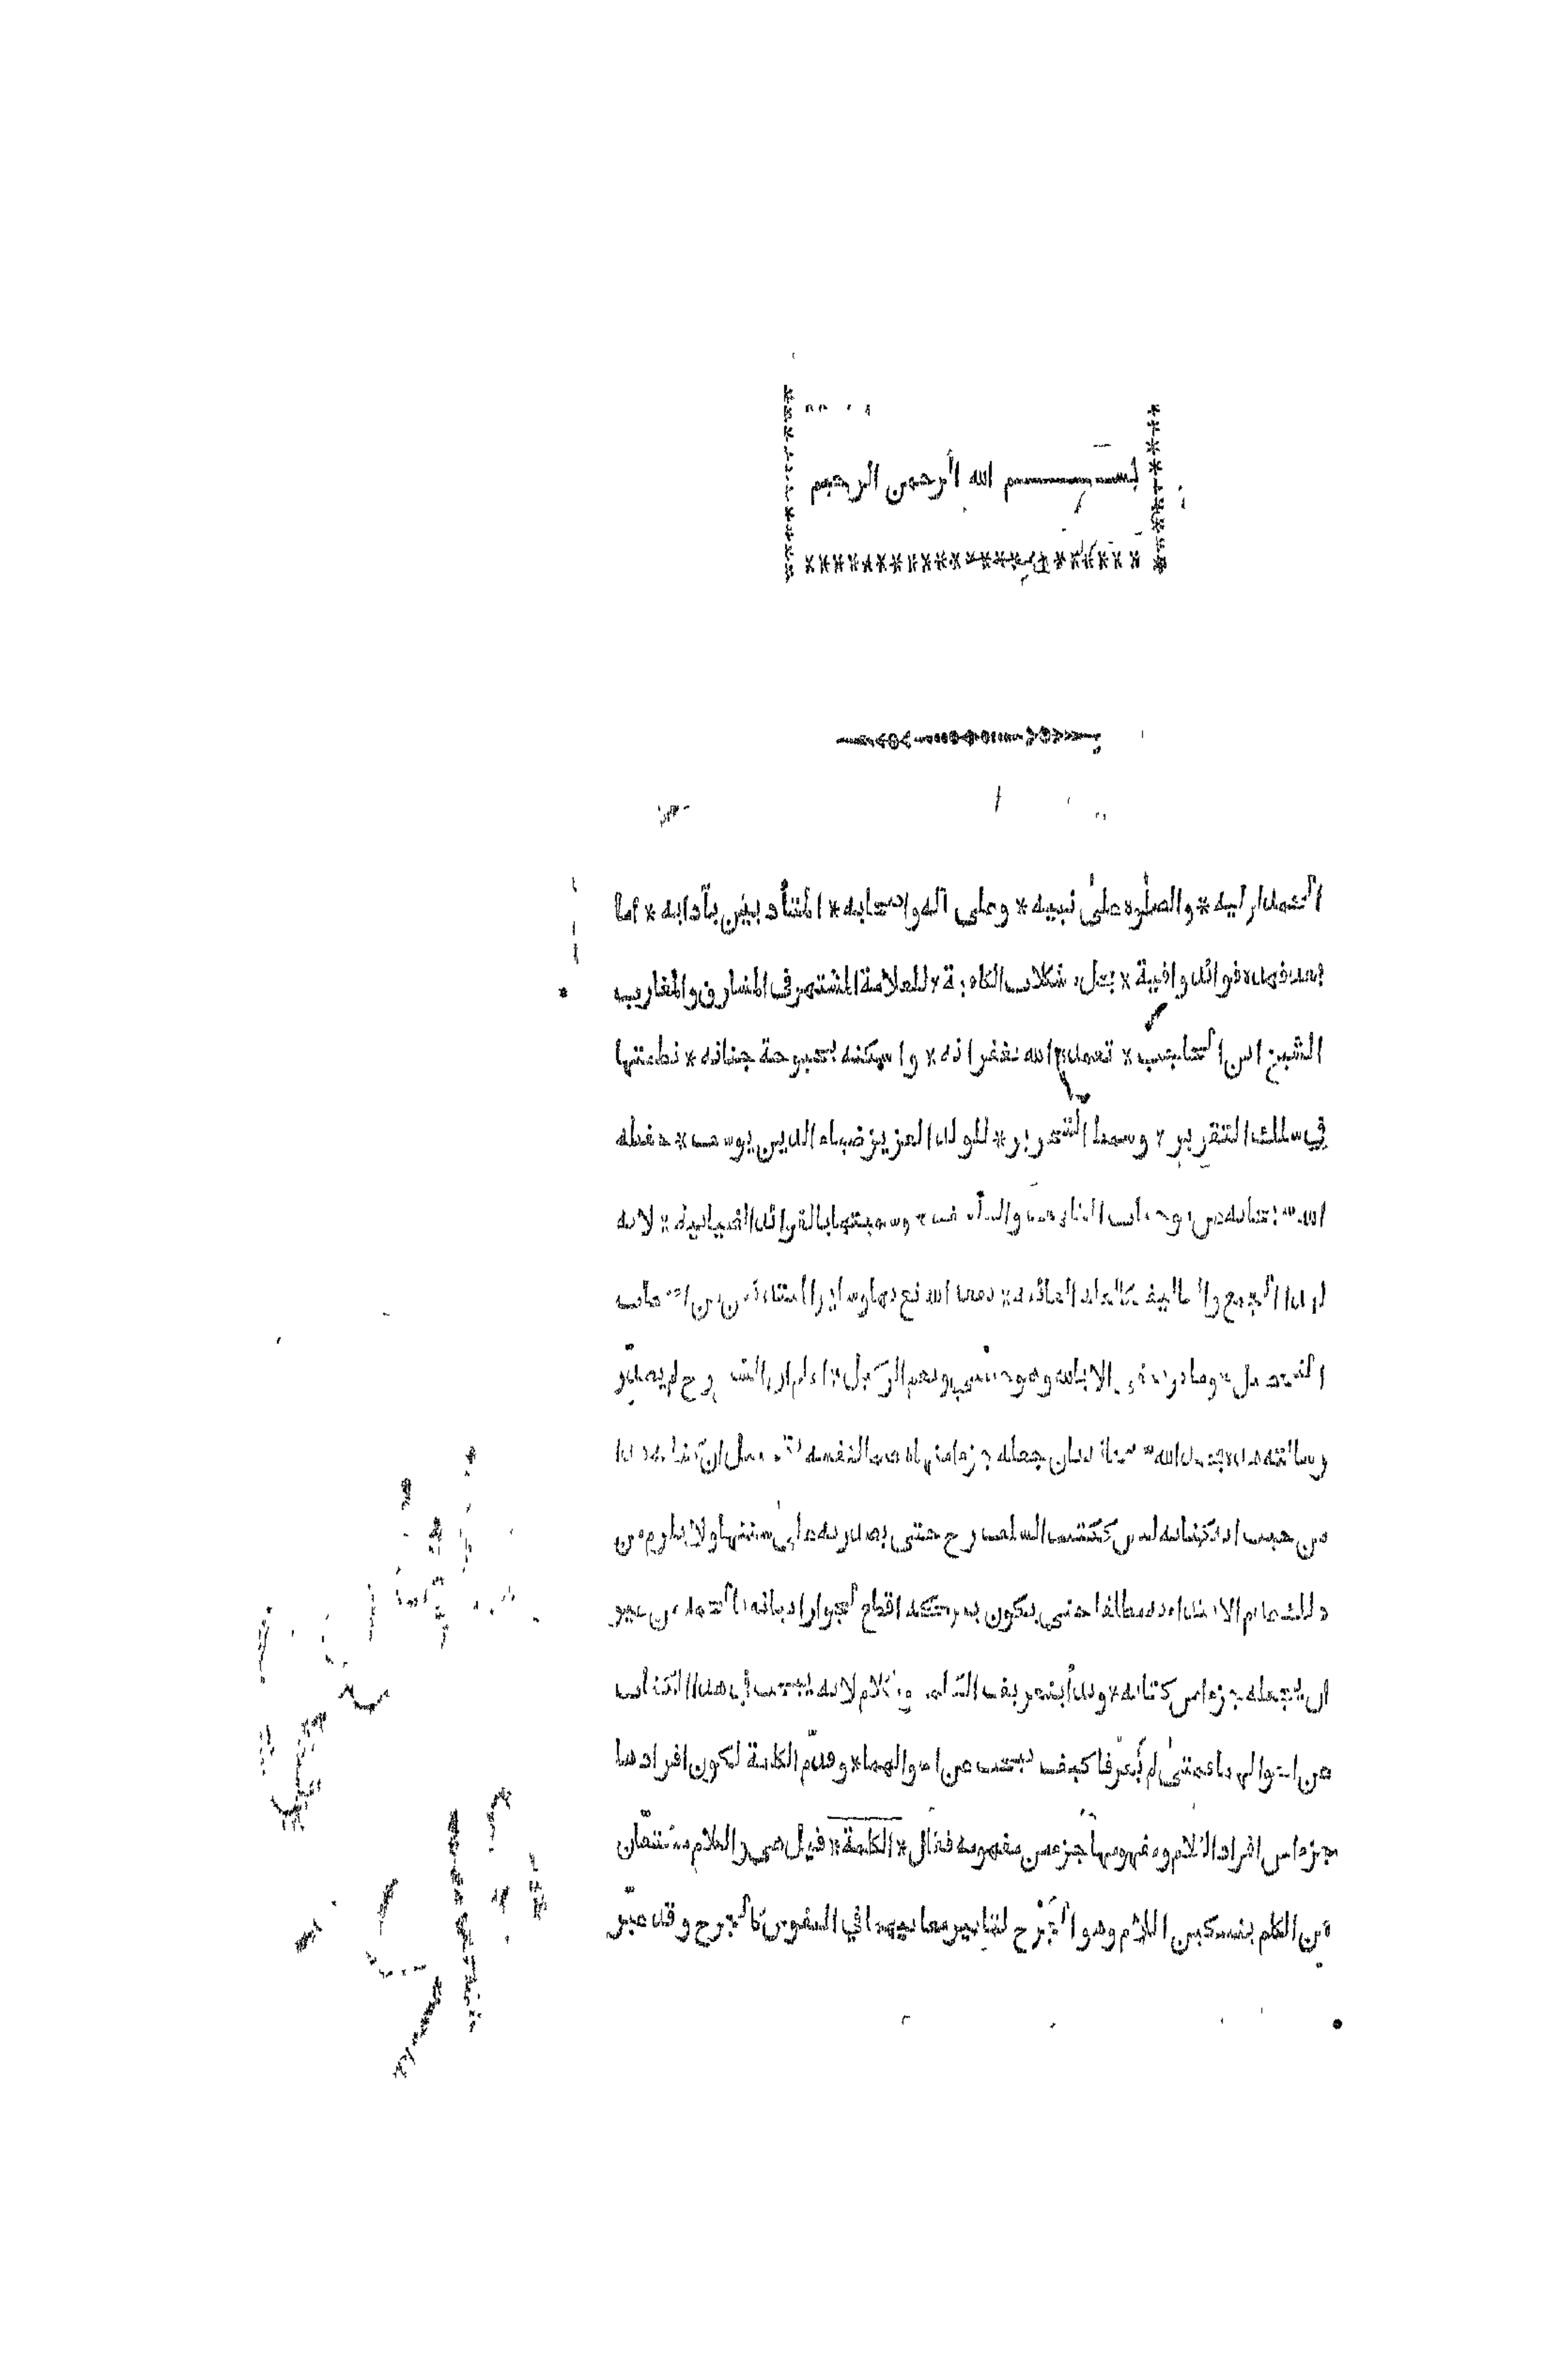 بسم الله الرحمن الرحيم
الحمد لوليه * والصلوة على نبيه * وعلى آله واصحابه * المتأدبين بآدابه * اما
بعد فهذه فوائد وافية * بحل مشكلات الكافية * للعلامة المشتهر في المشارق والمغارب
الشيخ ابن الحاجب * تغمده الله بغفرانه * واسكنه بحبوحة جنانه * نظمتها
في سلك التقرير * وسمط التحرير * للولد العزيز ضياء الدين يوسف * حفظه
الله سبحانه عن موجبات التلهف والتأسف * وسميتها بالفوائد الضيائية * لانه
لهذا الجمع والتأليف كالعلة الغائية * نفعه الله تع بها وسائر المبتدئين من اصحاب
التحصيل * وما توفيقي الا بالله وهو حسبي ونعم الوكيل * اعلم ان الشيخ رح لم يصدّر
رسالته هذه بحمد الله سبحانه بان جعله جزءا منها هضما لنفسه بتخييل ان كتابه هذا
من حيث انه كتابه ليس ككتب السلف رح حتى يصدر به على سننها ولا يلزم من
ذلك عدم الابتداء به مطلقا حتى يكون بتركه اقطع لجواز اتيانه بالحمد من غير
ان يجعله جزءا من كتابه * وبدأ بتعريف الكلمة والكلام لانه يبحث في هذا الكتاب
عن احوالهما فمتى لم يُعرّفا كيف يبحث عن احوالهما * وقدّم الكلمة لكون افرادها
جزءا من افراد الكلام ومفهومها جزء من مفهومه فقال * الكلمة * قيل هي والكلام مشتقّان
من الكلم بتسكين اللام وهو الجَرْح لتاثير معانيهما في النفوس كالجرح وقد عبّر